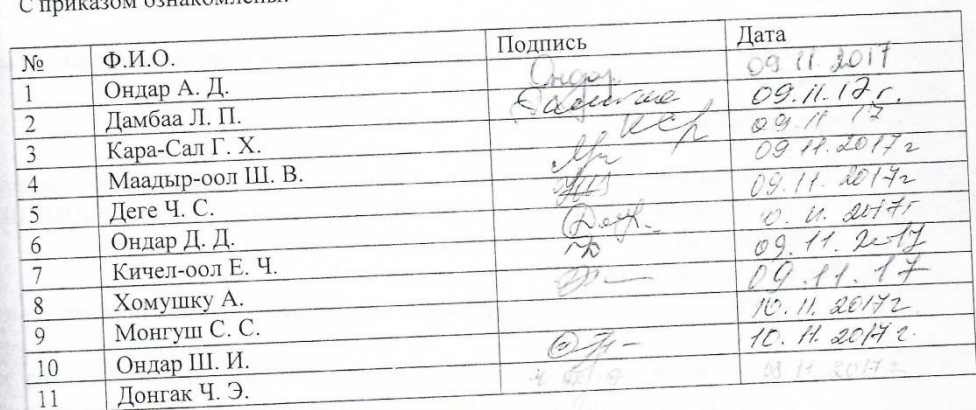 С приказом ознакомлены:
№ Ф.И.О. Подпись Дата
1 Ондар А. Д. Ондар 09 11 2017
2 Дамбаа Л. П. 09.11.17 г.
3 Кара-Сал Г. Х. 09.11 17
4 Маадыр-оол Ш. В. 09 11.2017г
5 Деге Ч. С. 09.11.2017г
6 Ондар Д. Д.
7 Кичел-оол Е. Ч. 09.11.2017
8 Хомушку А. 09.11.17
9 Монгуш С. С. 10.11.2017г
10 Ондар Ш. И. 10.11.2017 г.
11 Донгак Ч. Э. 09 11 2017г